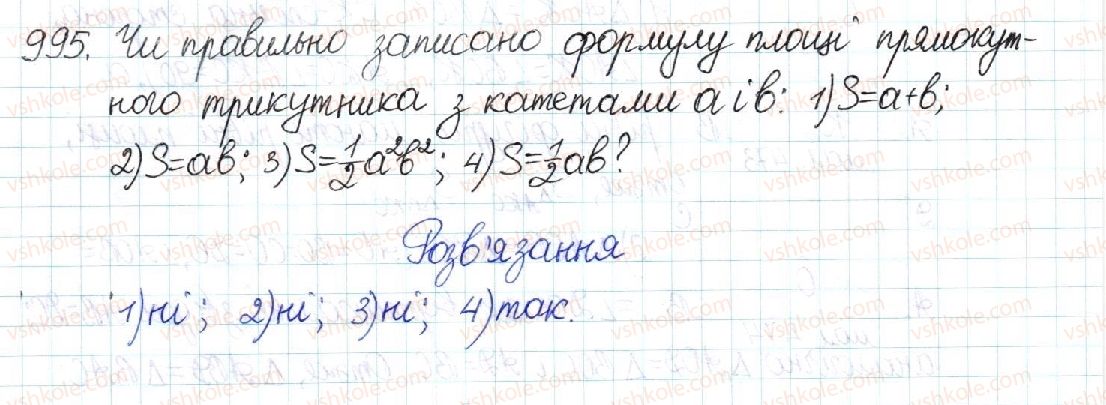 995. Чи правильно записано формулу площі прямокут-
ного трикутника з катетами a і b: 1) S=a+b;
2) S=ab; 3) S=1/2 a²b²; 4) S=1/2 ab?
Розв'язання
1) ні; 2) ні; 3) ні; 4) так.